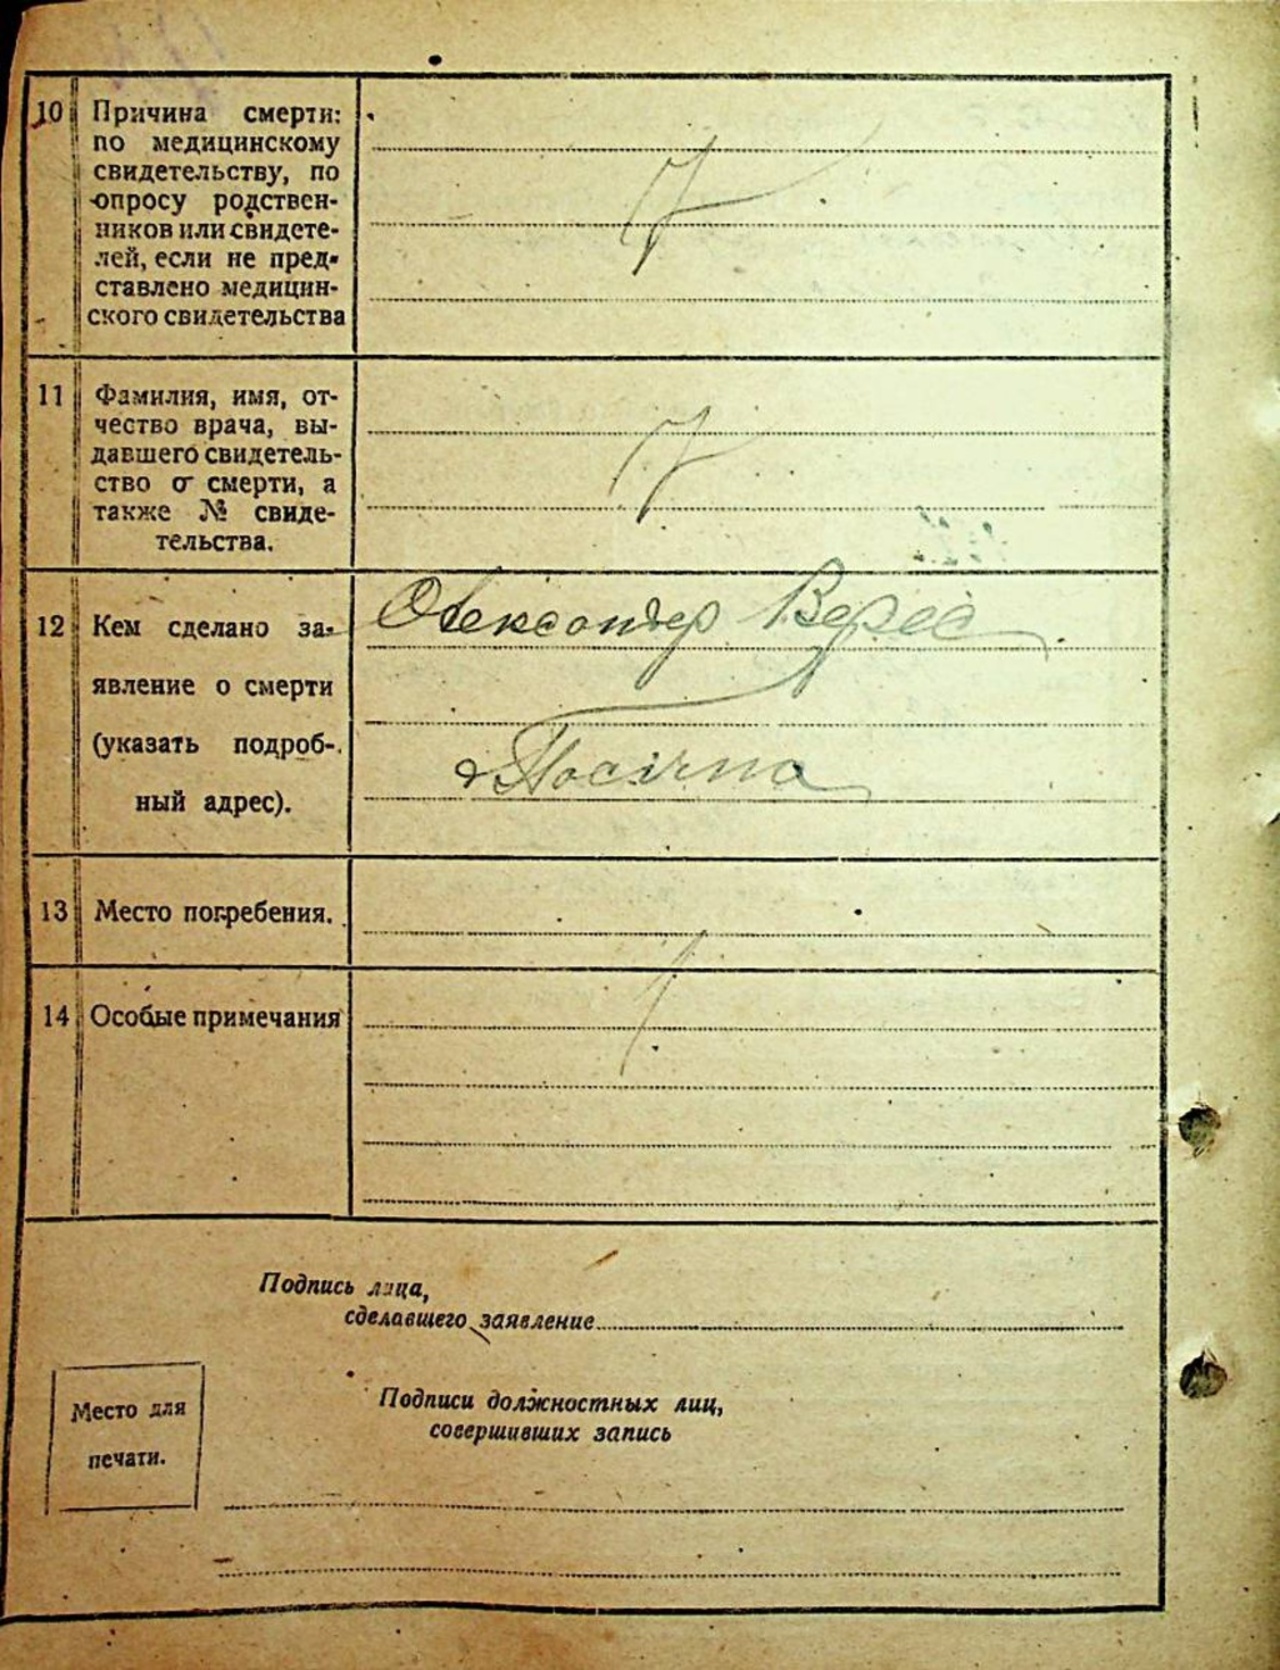 10 Причина смерти:
по медицинскому
свидетельству, по
опросу родствен-
ников или свидете-
лей, если не пред-
ставлено медицин-
ского свидетельства
11 Фамилия, имя, от-
чество врача, вы-
давшего свидетель-
ство о смерти, а
также № свиде-
тельства.
12 Кем сделано за-
явление о смерти
(указать подроб-
ный адрес).
Олександер Верес
13 Место погребения.
14 Особые примечания
Подпись лица,
сделавшего заявление
Место для
печати.
Подписи должностных лиц,
совершивших запись